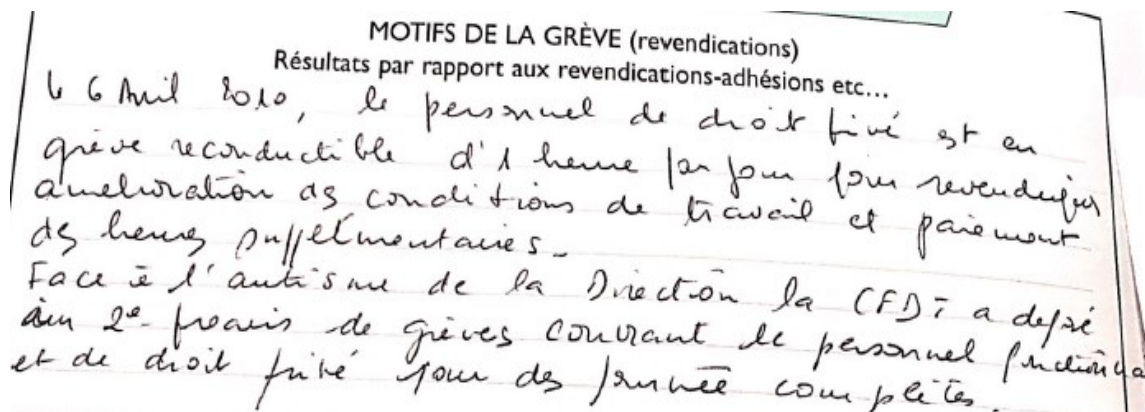 MOTIFS DE LA GRÈVE (revendications)
Résultats par rapport aux revendications-adhésions etc...
le 6 Avril 2010, le personnel de droit privé est en
grève reconductible d'1 heure par jour pour revendiquer
amelioration des conditions de travail et paiement
des heures supplémentaires.
Face à l'autisme de la Direction la CFDT a déposé
2e préavis de grèves couvrant le personnel
et de droit privé pour des journée complètes.